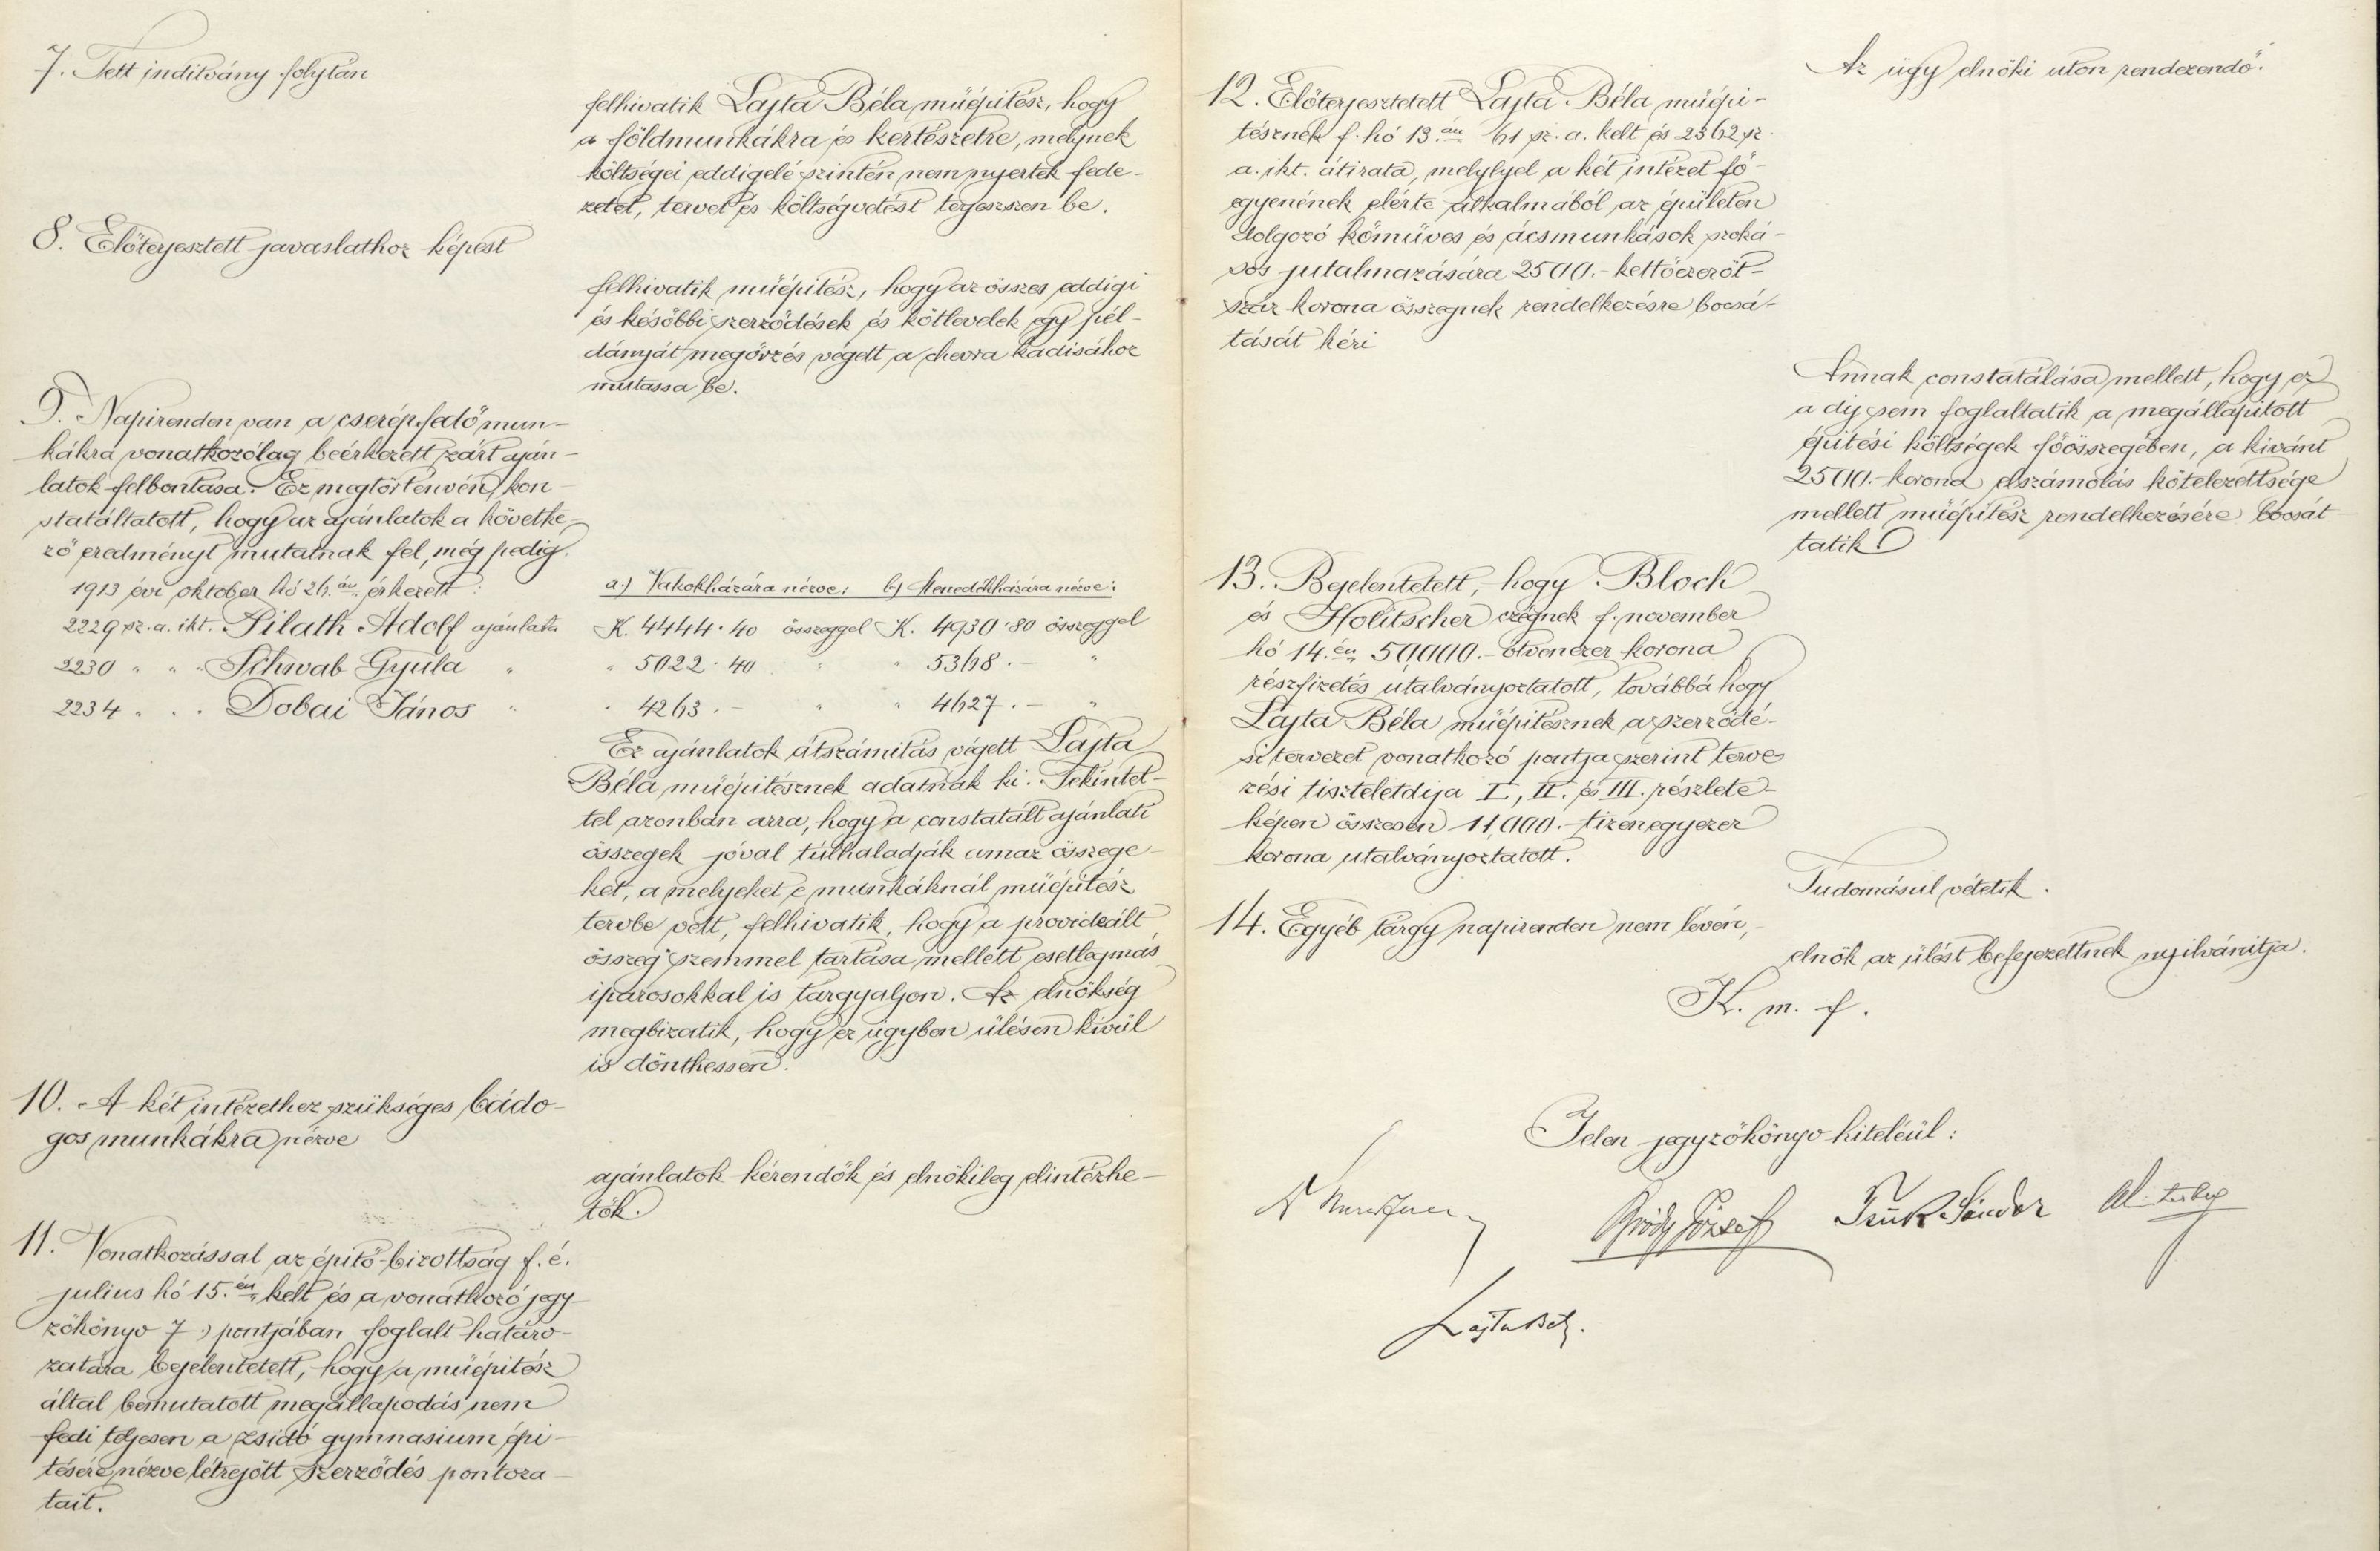 7. Tett inditvány folytán
felhivatik Lajta Béla müépitész, hogy
a földmunkákra és kertészetre, melynek
költségei eddigelé szintén nem nyertek fede-
zetet, tervet és költségvetést terjeszszen be.
8. Előterjesztett javaslathoz képest
felhivatik müépitész, hogy az összes eddigi
és későbbi szerződések és kötlevelek egy pél-
dányát megőrzés végett a chevra kadisához
mutassa be.
9. Napirenden van a cserépfedő mun-
kákra vonatkozólag beérkezett zárt aján-
latok felbontása. Ez megtörténvén, kon-
statáltatott, hogy az ajánlatok a követke-
ző eredményt mutatnak fel, még pedig.
1913 évi oktober hó 26.án érkezett:
a.) Vakokházára nézve: b) Menedékházára nézve:
2229 sz. a. ikt. Pilath Adolf ajánlata K. 4444.40 összeggel K. 4930.80 összeggel
2230 " " Schwab Gyula " " 5022.40 " " 5368.- "
2234 " " Dobai János " " 4263.- " " 4627.- "
Ez ajánlatok átszámitás végett Lajta
Béla müépitésznek adatnak ki. Tekintet-
tel azonban arra, hogy a constatált ajánlati
összegek jóval túlhaladják amaz összege-
ket, a melyeket e munkáknál müépitész
tervbe vett, felhivatik, hogy a provideált
összeg szemmel tartása mellett esetleg más
iparosokkal is tárgyaljon. Az elnökség
megbizatik, hogy ez ügyben ülésen kivül
is dönthessen.
10. A két intézethez szükséges bádo-
gos munkákra nézve
ajánlatok kérendők és elnökileg elintézhe-
tők.
11. Vonatkozással az épitő-bizottság f. é.
julius hó 15.én kelt és a vonatkozó jegy-
zőkönyv 7.) pontjában foglalt határo-
zatára bejelentetett, hogy a müépitész
által bemutatott megállapodás nem
fedi teljesen a zsidó gymnasium épi-
tésére nézve létrejött szerződés pontoza-
tait.
Az ügy elnöki uton rendezendő.
12. Előterjesztetett Lajta Béla müépi-
tésznek f. hó 13.án 61 sz. a. kelt és 2362 sz.
a. ikt. átirata, melylyel a két intézet fő-
egyenének elérte alkalmából az épületen
dolgozó kőmüves és ácsmunkások szoká-
sos jutalmazására 2500.- kettőezeröt-
száz korona összegnek rendelkezésre bocsá-
tását kéri
Annak constatálása mellett, hogy ez
a dij sem foglaltatik a megállapitott
épitési költségek főösszegében, a kivánt
2500.- korona elszámolás kötelezettsége
mellett müépitész rendelkezésére bocsát-
tatik.
13. Bejelentetett, hogy Bloch
és Holitscher czégnek f. november
hó 14.én 50,000.- ötvenezer korona
részfizetés utalványoztatott, továbbá hogy
Lajta Béla müépitésznek a szerződé-
si tervezet vonatkozó pontja szerint terve
zési tiszteletdija I, II. és III. részlete-
képen összesen 11,000.- tizenegyezer
korona utalványoztatott.
Tudomásul vétetik.
14. Egyéb tárgy napirenden nem lévén,
elnök az ülést befejezettnek nyilvánitja.
K. m. f.
Jelen jegyzőkönyv hiteléül:
Bródy József
Sándor
Lajta Béla